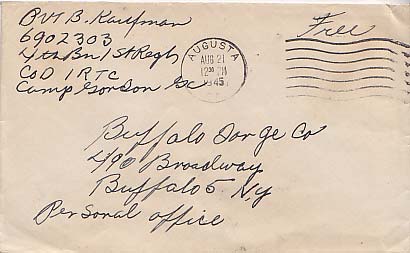 Pvt B. Kaufman
6902303
4th Bn 1st Regt
Co D IRTC
Camp Gordon Ga
AUGUSTA
AUG 21
12 30 PM
1945
Free
Buffalo Forge Co
490 Broadway
Buffalo 5 NY
Personal office